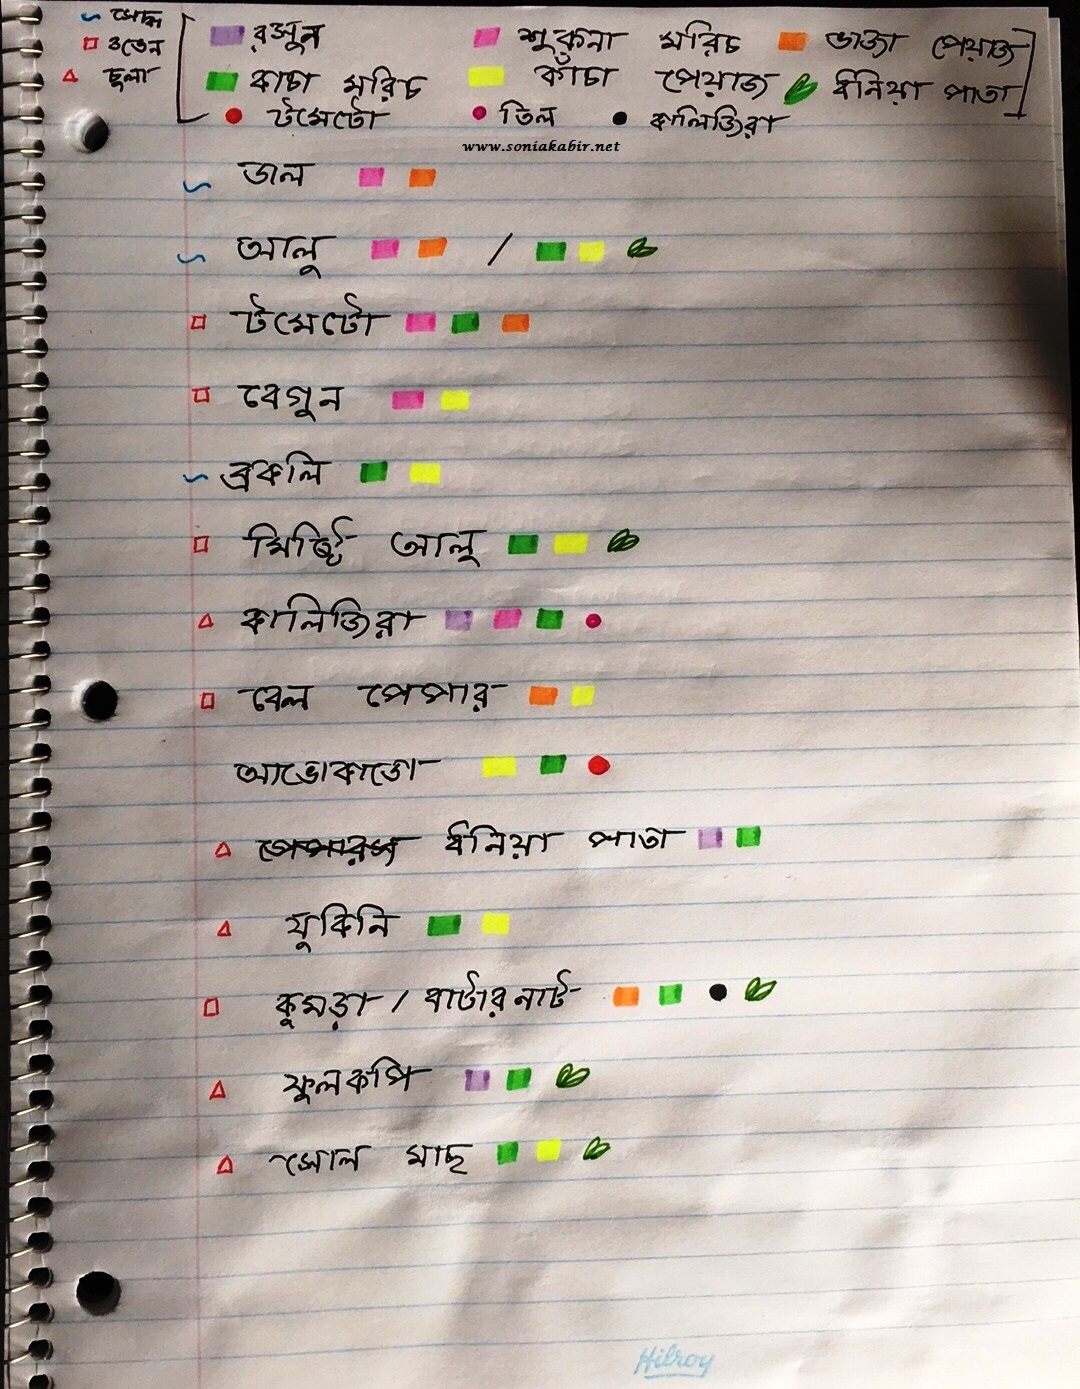 সেদ্ধ রসুন শুকনা মরিচ ভাজা পেয়াজ
ওভেন
চুলা কাচা মরিচ কাঁচা পেয়াজ ধনিয়া পাতা
টমেটো তিল কালিজিরা
www.soniakabir.net
ডাল
আলু /
টমেটো
বেগুন
ব্রকলি
মিষ্টি আলু
কালিজিরা
বেল পেপার
আভোকাডো
ধনিয়া পাতা
যুকিনি
কুমড়া / বাটারনাট
ফুলকপি
সোল মাছ
Hilroy